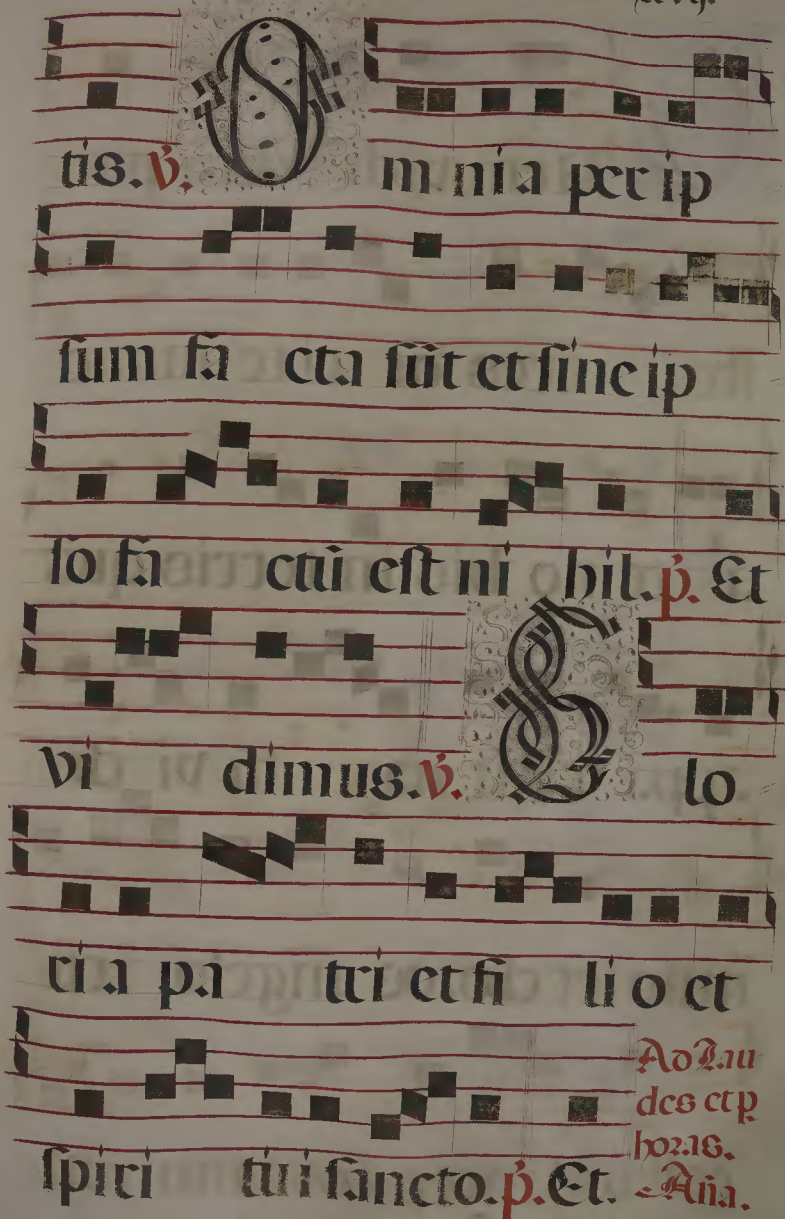 tis. v. Omnia per ip
sum fa cta sūt et sine ip
so fa ctū est ni hil. p. Et
vi dimus. v. Glo
ri a pa tri et fi li o et
spiri tui sancto. p. Et.
Ad Lau
des et p
horas.
Aña.